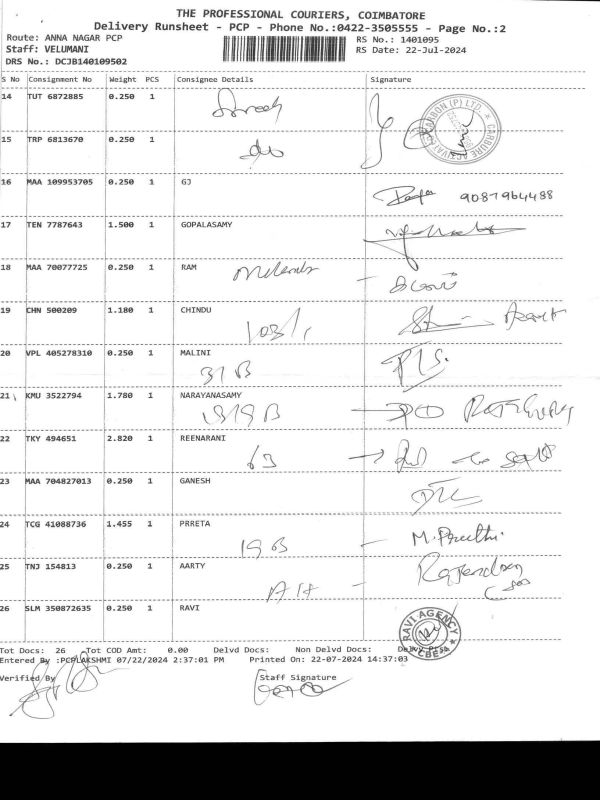 THE PROFESSIONAL COURIERS, COIMBATORE
Delivery Runsheet - PCP - Phone No.:0422-3505555 - Page No.:2
Route: ANNA NAGAR PCP RS No.: 1401095
Staff: VELUMANI RS Date: 22-Jul-2024
DRS No.: DCJB140109502
S No Consignment No Weight PCS Consignee Details Signature
14 TUT 6872885 0.250 1
15 TRP 6813670 0.250 1
16 MAA 109953705 0.250 1 GJ
9087964488
17 TEN 7787643 1.500 1 GOPALASAMY
18 MAA 70077725 0.250 1 RAM
19 CHN 500209 1.180 1 CHINDU
20 VPL 405278310 0.250 1 MALINI
31 B
21 KMU 3522794 1.780 1 NARAYANASAMY
22 TKY 494651 2.820 1 REENARANI
63
23 MAA 704827013 0.250 1 GANESH
24 TCG 41088736 1.455 1 PRRETA
19 B M. Preethi
25 TNJ 154813 0.250 1 AARTY
Rajendran
26 SLM 350872635 0.250 1 RAVI
RAVI AGENCY
CBE
Tot Docs: 26 Tot COD Amt: 0.00 Delvd Docs: Non Delvd Docs:
Entered By :PCPLAKSHMI 07/22/2024 2:37:01 PM Printed On: 22-07-2024 14:37:03
Verified By Staff Signature